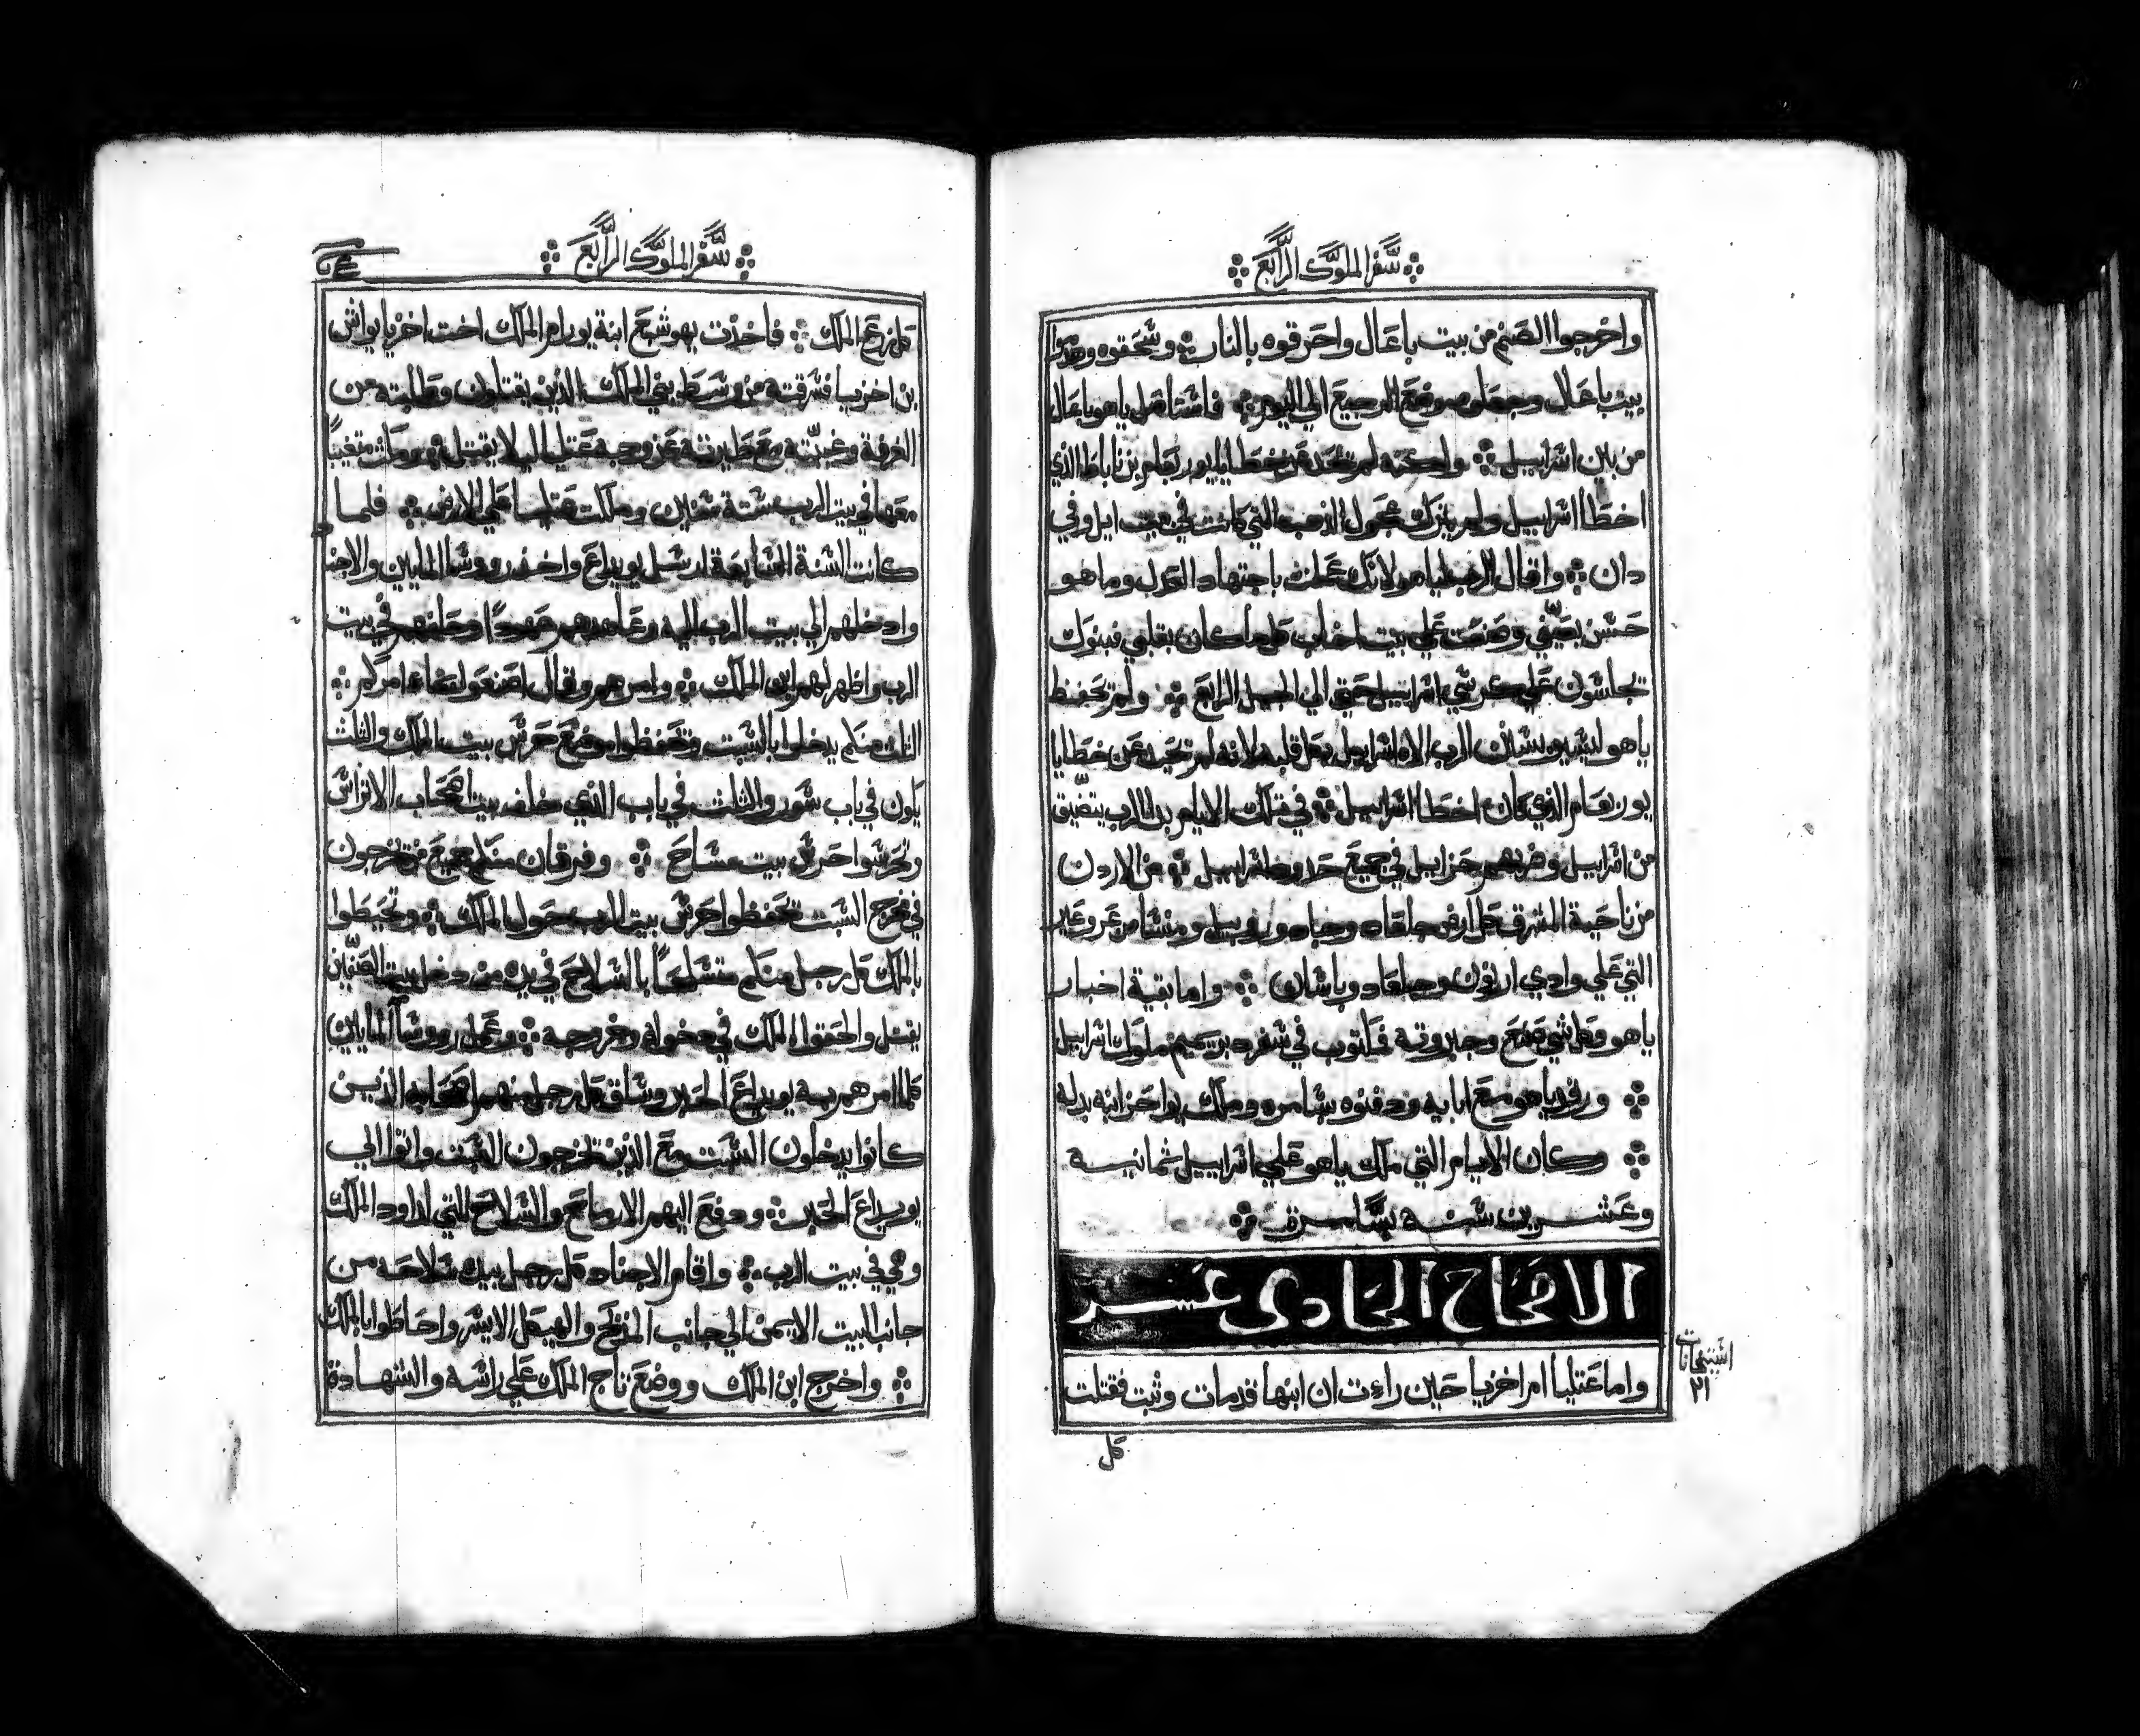 سفر الملوك الرابع
واخرجوا الصنم من بيت باعال واحرقوه بالنار وسحقوه وهدموا
بيت باعال وجعلوه موضع الرجيع الي اليوم فاستاصل ياهو باعال
من بين اسراييل ولكنه لم تحد عن خطايا يوربعام بن ناباط الذي
اخطا اسراييل ولم يترك عجول الذهب التي كانت في بيت ايل وفي
دان وقال الرب لياهو لانك عملت باجتهاد العدل وما هو
حسن بعيني وصنعت علي بيت اخاب كل ما كان بقلبي فبنوك
تجلسون علي كرسي اسراييل حتي الي الجيل الرابع ولم تحفظ
ياهو ليسير بسنن الرب الاه اسراييل بكل قلبه لانه لم تحيد عن خطايا
يوربعام الذي كان اخطا اسراييل في تلك الايام بدا الرب يتضيق
من اسراييل وضربهم حزاييل في جميع حدود اسراييل من الاردن
من ناحية المشرق كل ارض جلعاد وجاد وروبيل ومنسا من عروعير
التي علي وادي ارنون وجلعاد وباشان واما بقية اخبار
ياهو وكل شي صنع وجبروته فمكتوب في سفر دبريميم ملوك اسراييل
ورقد ياهو مع ابايه ودفنوه بشامره وملك يواحز ابنه بدله
وكان الايام التي ملك ياهو علي اسراييل ثمانيه
وعشرين سنه بشامرة
الاصحاح الحادى عشر
واما عتليا ام اخزيا حين راءت ان ابنها قد مات وثبت فقتلت
اشتحانات
٢١
كل
سفر الملوك الرابع
كل زرع الملك فاخذت يهوشبع ابنة يورام الملك اخت اخزيا يواش
بن اخزيا فسرقته من وسط بني الملك الذين يقتلون وطلبته من
الغرفة وغيبته مع ظيرته عن وجه عتليا ليلا يقتل ومكث متغيبًا
معها في بيت الرب ستة سنين وملكت عتليا علي الارض فلما
كانت السنة السابعة ارسل يويداع واخذ روسا المايين والاجناد
وادخلهم الي بيت الرب اليه وعاهدهم عهدًا وحلفهم في بيت
الرب واظهر لهم ابن الملك وامرهم وقال اصنعوا بما امركم
الثلث منكم يدخلوا بالسبت وتحفظوا موضع حرس بيت الملك والثلث
يكون في باب سور والثلث في باب الذي خلف بيت اصحاب الاتراس
وتحرسوا حرس بيت مساح وفرقان منكم جميع من تخرجون
في مخرج السبت تحفظوا حرس بيت الرب حول الملك وتحيطوا
بالملك كل رجل منكم متسلحًا بالسلاح في يده من دخل بيت الصفين
يقتل والحقوا الملك في دخوله وخروجه وعمل روسا المايين
كلما امرهم به يويداع الحبر وساق كل رجل منهم اصحابه الذين
كانوا يدخلون السبت مع الذين تخرجون السبت واتوا الي
يويداع الحبر ودفع اليهم الارماح والسلاح التي لداود الملك
وهي في بيت الرب واقام الاجناد كل رجل بيده سلاحه من
جانب البيت الايمن الي جانب المذبح والهيكل الايسر واحاطوا بالملك
واخرج ابن الملك ووضع تاج الملك علي راسه والشهادة